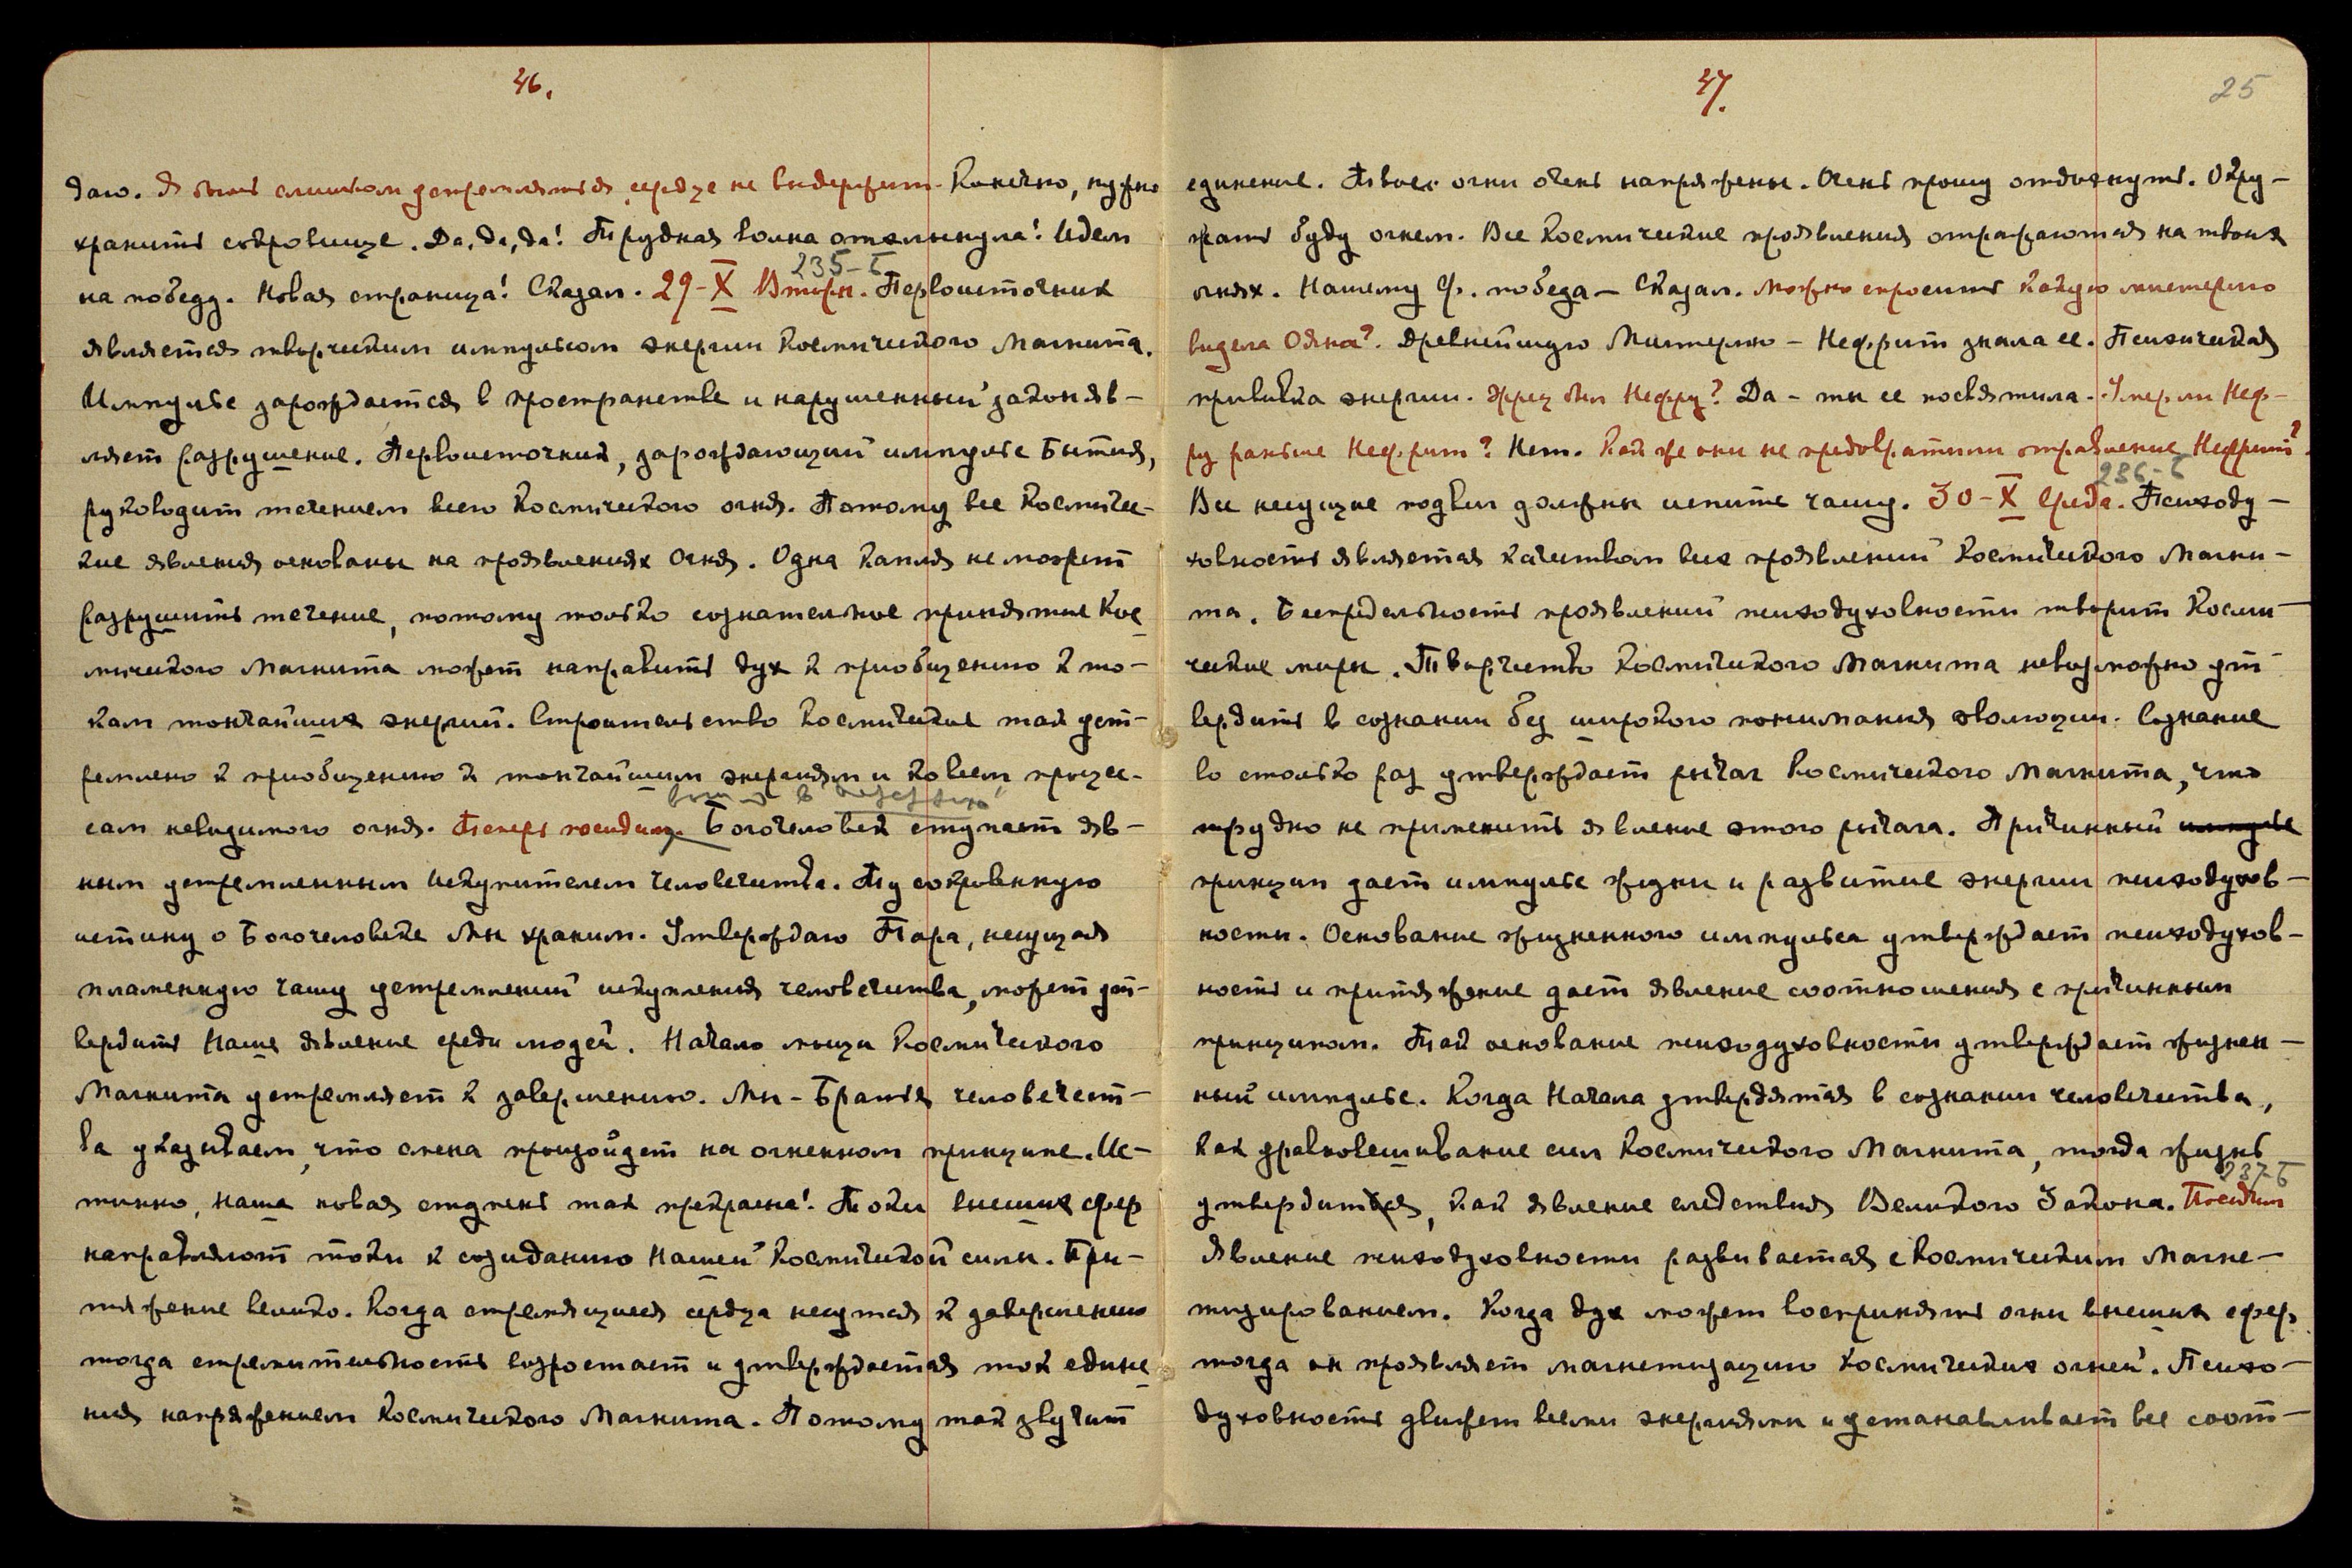 46.
даю. Я боюсь слишком устремляться, сердце не выдержит. Конечно, нужно
хранить сокровище. Да, да, да! Трудная волна отхлынула! Идем
235-Б
на победу. Новая страница! Сказал. 29-X Вторн. Первоисточник
является творческим импульсом энергии Космического Магнита.
Импульс зарождается в пространстве и нарушенный закон яв-
ляет разрушение. Первоисточник, зарождающий импульс Бытия,
руководит течением всего Космического огня. Потому все Космичес-
кие явления основаны на проявлениях Огня. Одна капля не может
разрушить течение, потому только сознательное принятие Кос
мического Магнита может направить дух к приобщению к то-
кам тончайших энергий. Строительство Космическое так уст-
ремлено к приобщению к тончайшим энергиям и ко всем процес-
сам невидимого огня. Теперь посидим. Богочеловек ступает яв-
ным устремленным Искупителем человечества. Ту сокровенную
истину о Богочеловеке Мы храним. Утверждаю Тара, несущая
пламенную чашу устремлений искупления человечества, может ут-
вердить Наше явление среди людей. Начало мощи Космического
Магнита устремляет к завершению. Мы - Братья человечест-
ва указываем, что смена произойдет на огненном принципе. Ис-
тинно, наша новая ступень так прекрасна! Токи внешних сфер
направляют токи к созиданию Нашей Космической силы. При-
тяжение велико. Когда стремящиеся сердца несутся к завершению
тогда стремительность возростает и утверждается ток едине
ния напряжением Космического Магнита. Потому так звучит
47.
25
единение. Твои огни очень напряжены. Очень прошу отдохнуть. Окру-
жать буду огнем. Все Космические проявления отражаются на твоих
огнях. Нашему Ф. победа - Сказал. Можно спросить какую мистерию
видела Ояна? Древнейшую Мистерию - Нефрит знала ее. Психическая
прививка энергии. Жрец был Нефру? Да - ты ее посвятила. Умер ли Неф-
ру раньше Нефрит? Нет. Как же они не предовратили отравление Нефрит?
236-Б
Все несущие подвиг должны испить чашу. 30-X Среда. Психоду-
ховность является качеством всех проявлений Космического Магни-
та. Беспредельность проявлений психодуховности творит Косми-
ческие миры. Творчество Космического Магнита невозможно ут-
вердить в сознании без широкого понимания эволюции. Сознание
во столько раз утверждает рычаг Космического Магнита, что
трудно не применить явление этого рычага. Причинный импульс
принцип дает импульс жизни и развитие энергии психодухов-
ности. Основание жизненного импульса утверждает психодухов-
ность и притяжение дает явление соотношения с причинным
принципом. Так основание психодуховности утверждает жизнен-
ный импульс. Когда Начала утвердятся в сознании человечества,
как уравновешивание сил Космического Магнита, тогда жизнь
237-Б
утвердится, как явление следствия Великого Закона. Посидим
Явление психодуховности развивается с Космическим Магне-
тизированием. Когда дух может воспринять огни внешних сфер,
тогда он проявляет магнетизацию космических огней. Психо-
духовность движет всеми энергиями и устанавливает все соот-